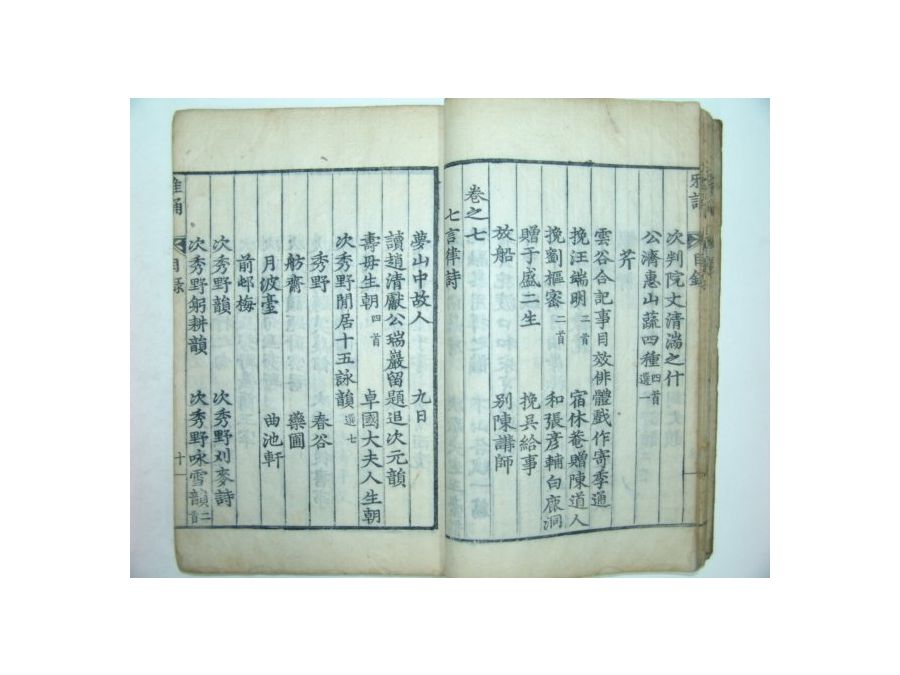 雅誦 目錄
次判院丈清湍之什
公濟惠山蔬四種 四首選一
芹
雲谷合記事目效俳體戲作寄季通
挽汪端明 二首 宿休菴贈陳道人
挽劉樞密 二首 和張彥輔白鹿洞
贈于盛二生 挽吳給事
放船 別陳講師
卷之七
七言律詩
夢山中故人 九日
讀趙清獻公瑞巖留題追次元韻
壽母生朝 四首 卓國大夫人生朝
次秀野閒居十五詠韻 選七
秀野 春谷
舫齋 藥圃
月波臺 曲池軒
前邨梅
次秀野韻 次秀野刈麥詩
次秀野躬耕韻 次秀野咏雪韻 二首
雅誦 目錄 十